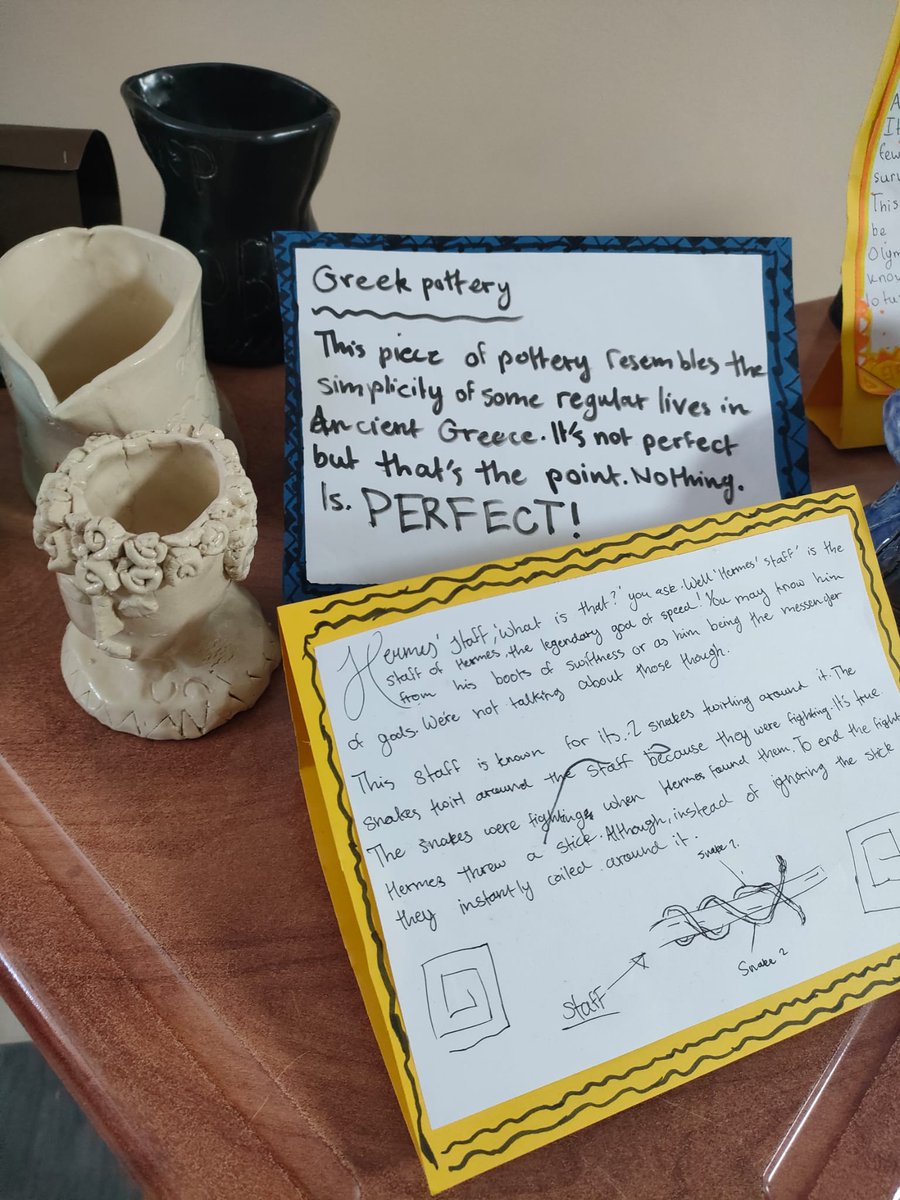 Greek pottery
This piece of pottery resembles the
simplicity of some regular lives in
Ancient Greece. It's not perfect
but that's the point. Nothing.
Is. PERFECT!
Hermes' staff, 'what is that?' you ask. Well 'Hermes' staff' is the
staff of Hermes, the legendary god of speed! You may know him
from his boots of swiftness or as him being the messenger
of gods. We're not talking about those though.
This staff is known for its. 2 snakes twirling around it. The
snakes twirl around the staff because they were fighting. It's true.
The snakes were fighting when Hermes found them. To end the fight
Hermes threw a stick. Although, instead of ignoring the stick
they instantly coiled around it.
Snake 1.
Snake 2
Staff
A
It
few
surv
This
be
Olym
know